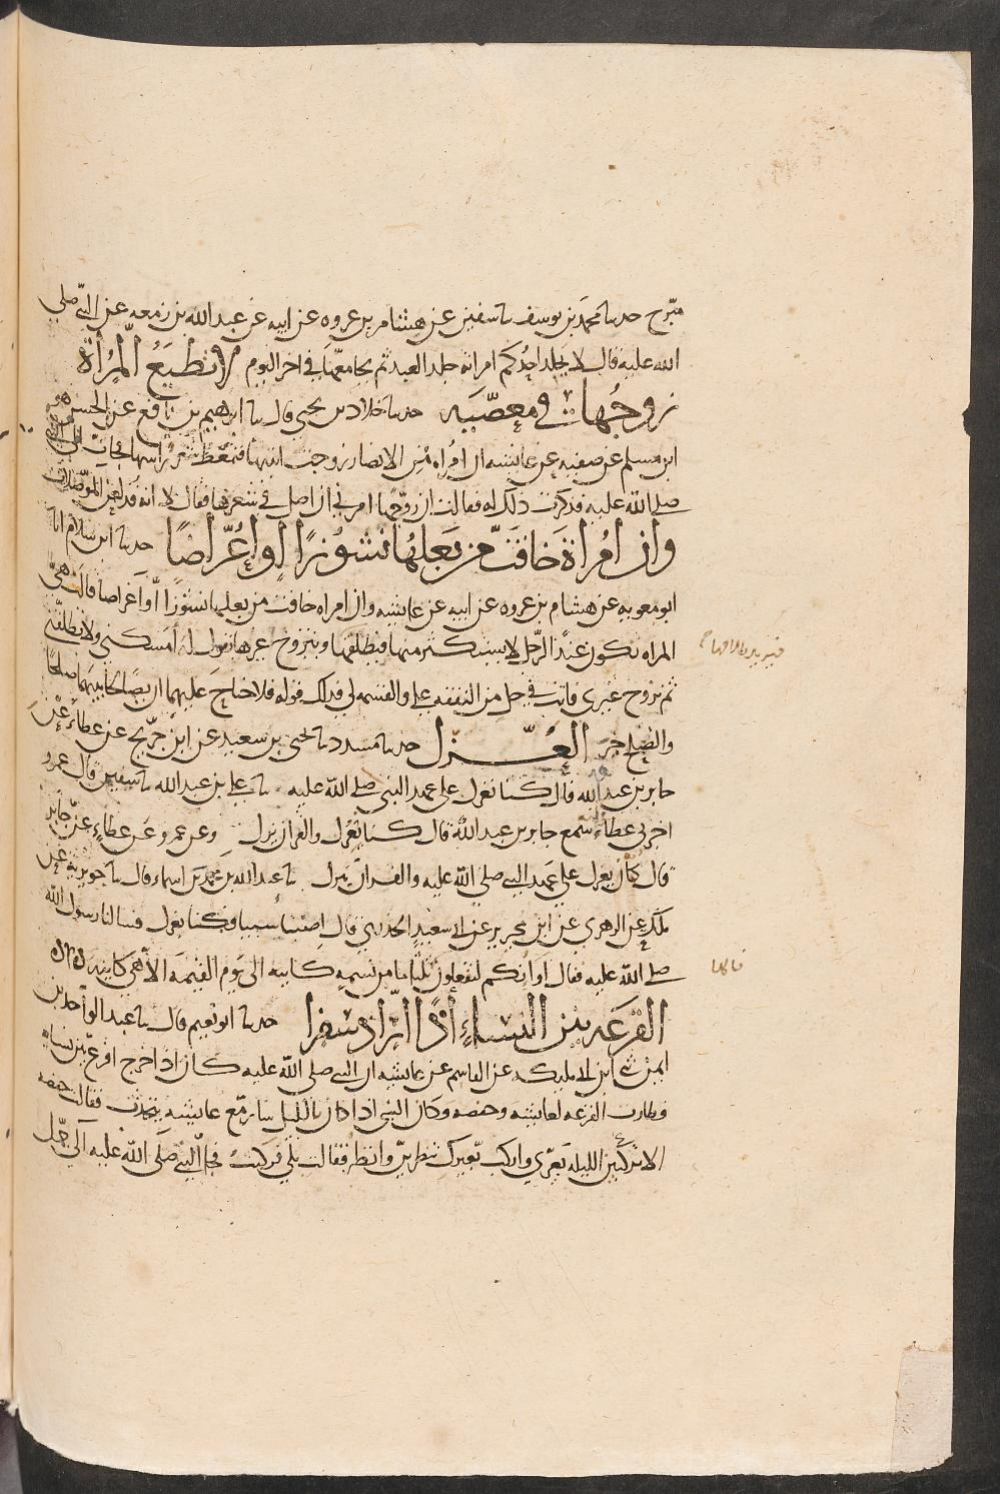 مبرح حدثنا محمد بن يوسف نا سفين عن هشام بن عروه عن ابيه عن عبد الله بن زمعه عن النبي صلى
الله عليه قال لا يجلد احدكم امراته جلد العبد ثم يجامعها في اخر اليوم لا تطيع المرأة
زوجها في معصيه حدثنا خلاد بن يحيى قال نا ابرهيم بن نافع عن الحسن هو
ابن مسلم عن صفيه عن عايشه ان امراه من الانصار زوجت ابنتها فتمعط شعر راسها فجات الى النبي
صلى الله عليه فذكرت ذلك له فقالت ان زوجها امرني ان اصل في شعرها فقال لا انه قد لعن الموصلات
وان امراة خافت من بعلها نشوزا او اعراضا حدثنا ابن سلام انا
ابو معويه عن هشام بن عروه عن ابيه عن عايشه وان امراه خافت من بعلها نشوزا او اعراضا قالت هي
المراه تكون عند الرجل لا يستكثر منها فيطلقها ويتزوج غيرها تقول له امسكني ولا تطلقني
ثم تزوج غيري فانت في حل من النفقه علي والقسمه لي فذلك قوله فلا جناح عليهما ان يصالحا بينهما صلحا
والصلح خير العزل حدثنا مسدد نا يحيى بن سعيد عن ابن جريج عن عطاء عن
جابر بن عبد الله قال كنا نعزل على عهد النبي صلى الله عليه نا علي بن عبد الله نا سفين قال عمرو
اخبرني عطاء سمع جابر بن عبد الله قال كنا نعزل والقران ينزل وعن عمرو عن عطاء عن جابر
قال كنا نعزل على عهد النبي صلى الله عليه والقران ينزل نا عبد الله بن محمد بن اسماء قال نا جويرية عن
ملك عن الزهري عن ابن محيريز عن ابي سعيد الخدري قال اصبنا سبيا فكنا نعزل فسالنا رسول الله
صلى الله عليه فقال او انكم لتفعلون ثلثا ما من نسمه كاينه الى يوم القيمه الا هي كاينه
القرعه بين النساء اذا اراد سفرا حدثنا ابو نعيم قال نا عبد الواحد بن
ايمن ني ابن ابي مليكه عن القاسم عن عايشه ان النبي صلى الله عليه كان اذا خرج اقرع بين نسايه
فطارت القرعه لعايشه وحفصه وكان النبي اذا كان بالليل سار مع عايشه يتحدث فقالت حفصه
الا تركبين الليله بعيري واركب بعيرك تنظرين وانظر فقالت بلى فركبت فجا النبي صلى الله عليه الى جمل